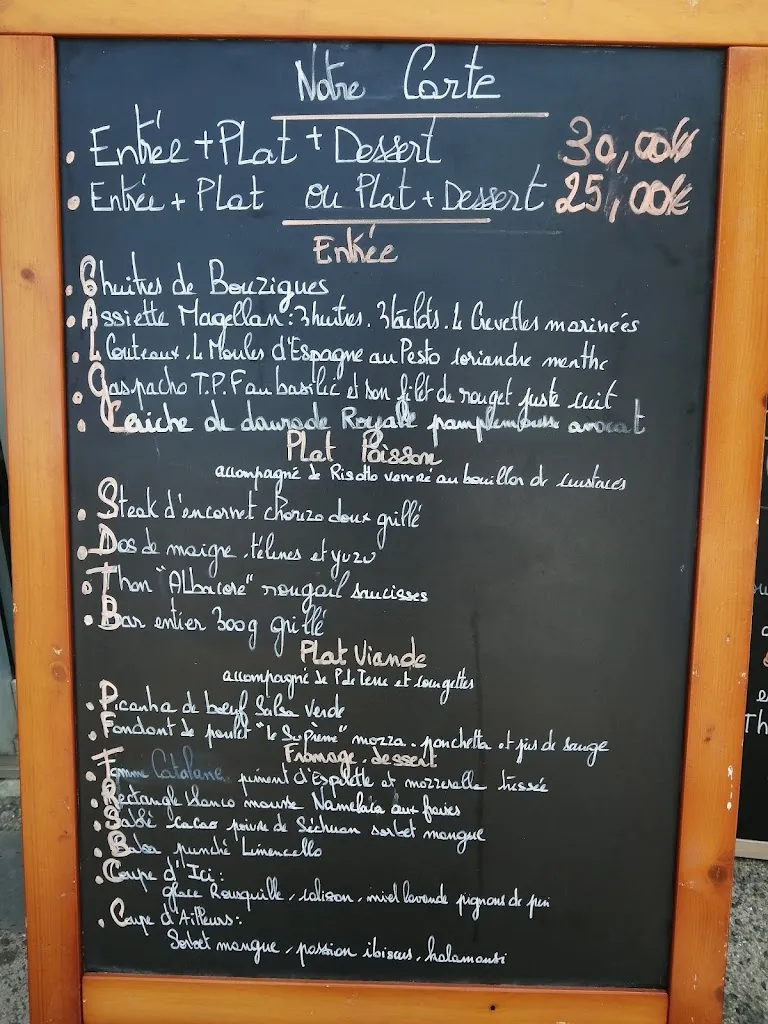 Notre Carte
• Entrée + Plat + Dessert 30,00€
• Entrée + Plat ou Plat + Dessert 25,00€
Entrée
• 6 huitres de Bouzigues
• Assiette Magellan : 3 huitres . 3 bulots . 4 Crevettes marinées
• 4 Couteaux . 4 Moules d'Espagne au Pesto coriandre menthe
• Gaspacho T.P.F au basilic et son filet de rouget juste cuit
• Ceviche de daurade Royale pamplemousse avocat
Plat Poisson
accompagné de Risotto veneré au bouillon de crustaces
• Steak d'encornet chorizo doux grillé
• Dos de maigre . télines et yuzu
• Thon "Albacore" rougail saucisses
• Bar entier 300g grillé
Plat Viande
accompagné de P de Terre et courgettes
• Picanha de boeuf Salsa verde
• Fondant de poulet "le Suprème" mozza . panchetta et jus de sauge
Fromage . dessert
• Tomme Catalane, piment d'Espelette et mozzarella tressée
• Rectangle blanco mousse Namelaka aux fraises
• Sablé cacao poivre de Séchuan sorbet mangue
• Baba punché Limoncello
• Coupe d'Ici :
glace Rousquille , calison , miel lavande pignons de pin
• Coupe d'Ailleurs :
Sorbet mangue , passion ibiscus , kalamansi
Th